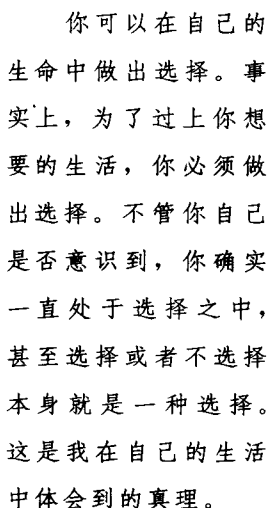 你可以在自己的
生命中做出选择。事
实上，为了过上你想
要的生活，你必须做
出选择。不管你自己
是否意识到，你确实
一直处于选择之中，
甚至选择或者不选择
本身就是一种选择。
这是我在自己的生活
中体会到的真理。